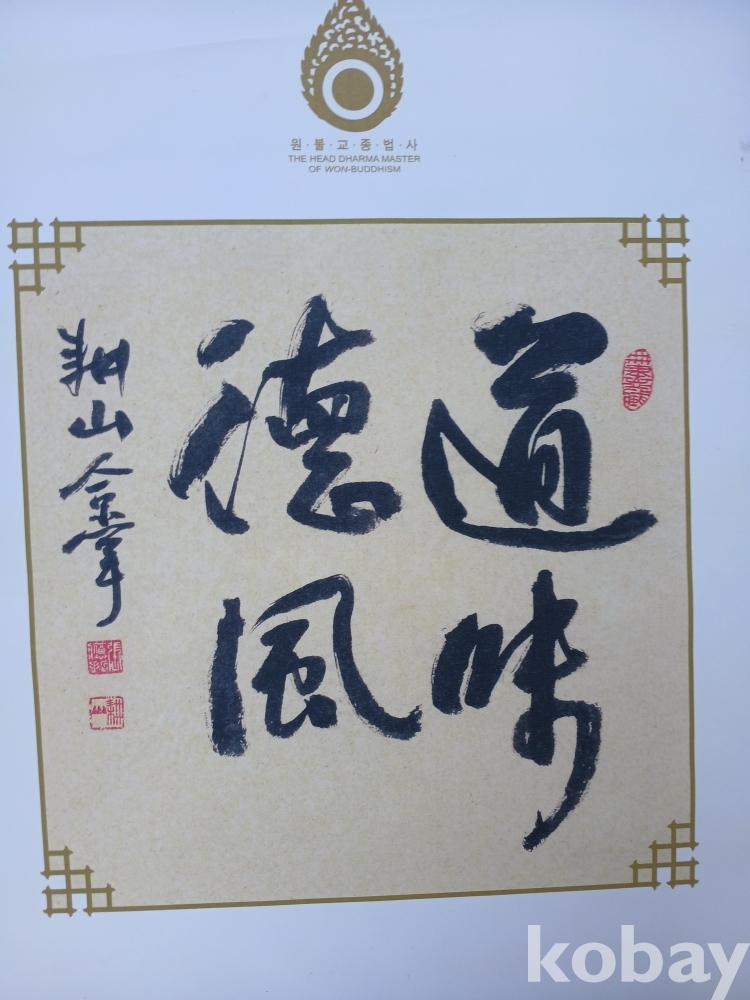 원·불·교·종·법·사
THE HEAD DHARMA MASTER
OF WON-BUDDHISM
道味
德風
耕山合掌
耕山
kobay